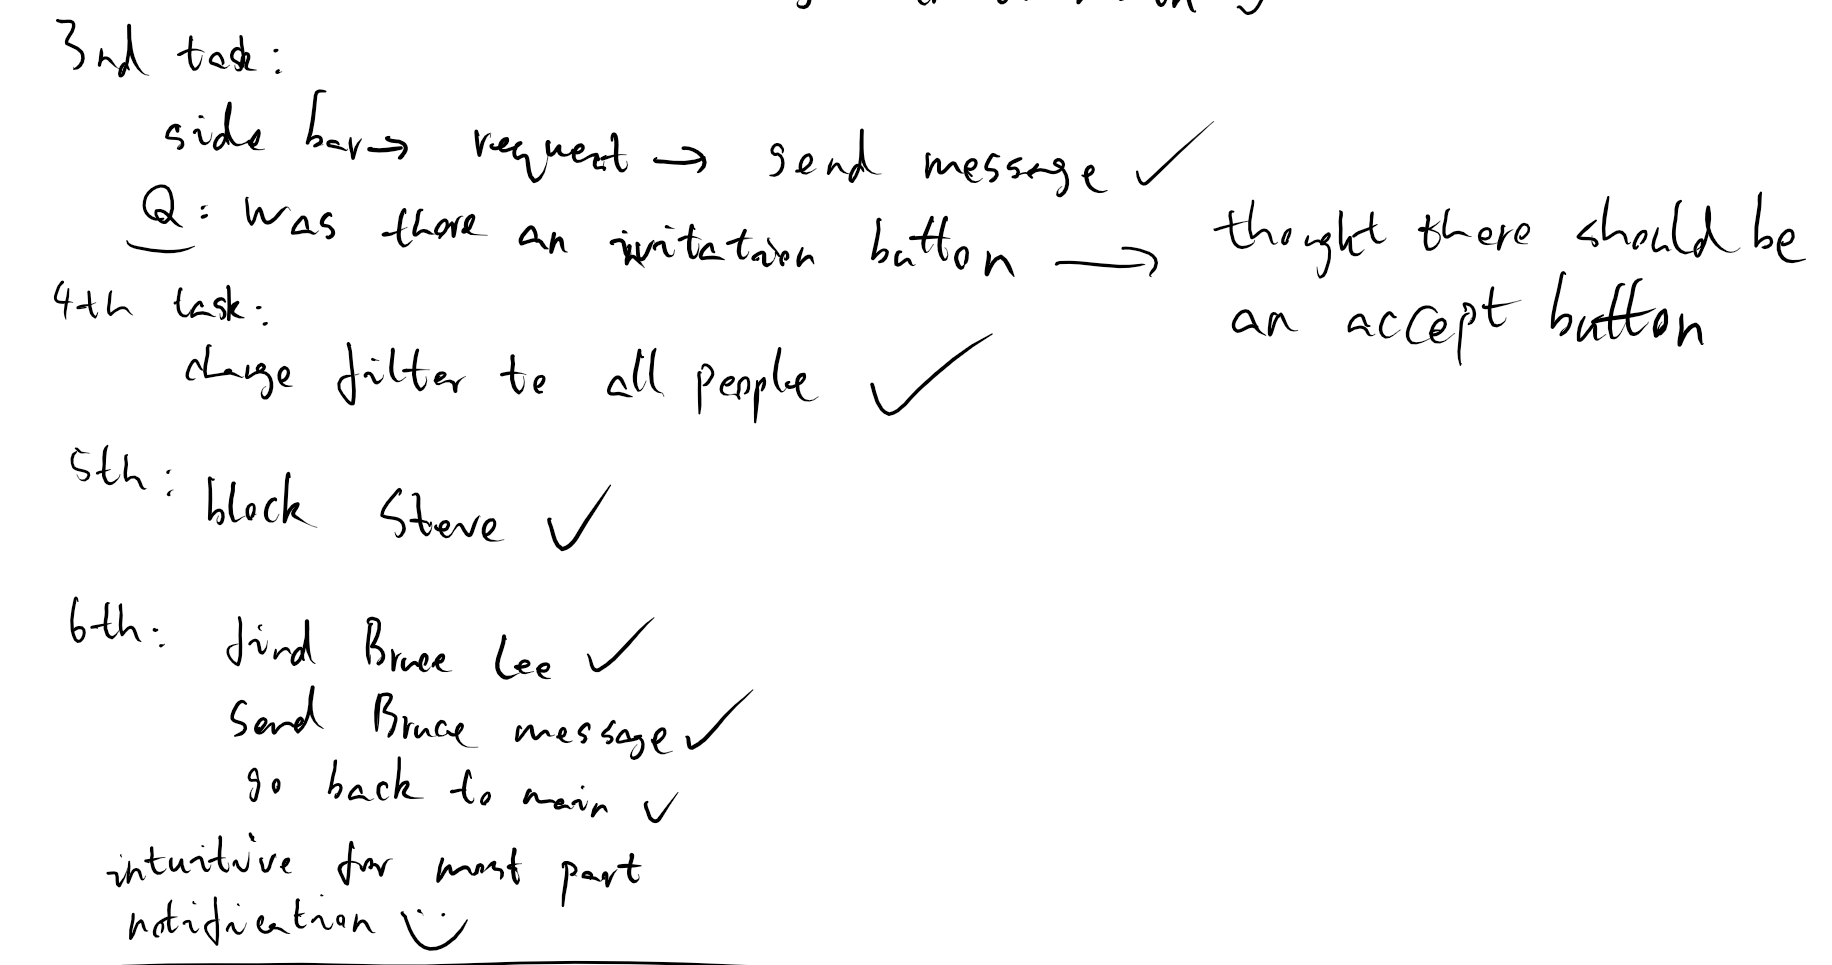 3nd task:
side bar → request → send message ✓
Q: Was there an invitation button → thought there should be
an accept button
4th task:
change filter to all people ✓
5th: block Steve ✓
6th: find Bruce Lee ✓
send Bruce message ✓
go back to main ✓
intuitive for most part
notification :)